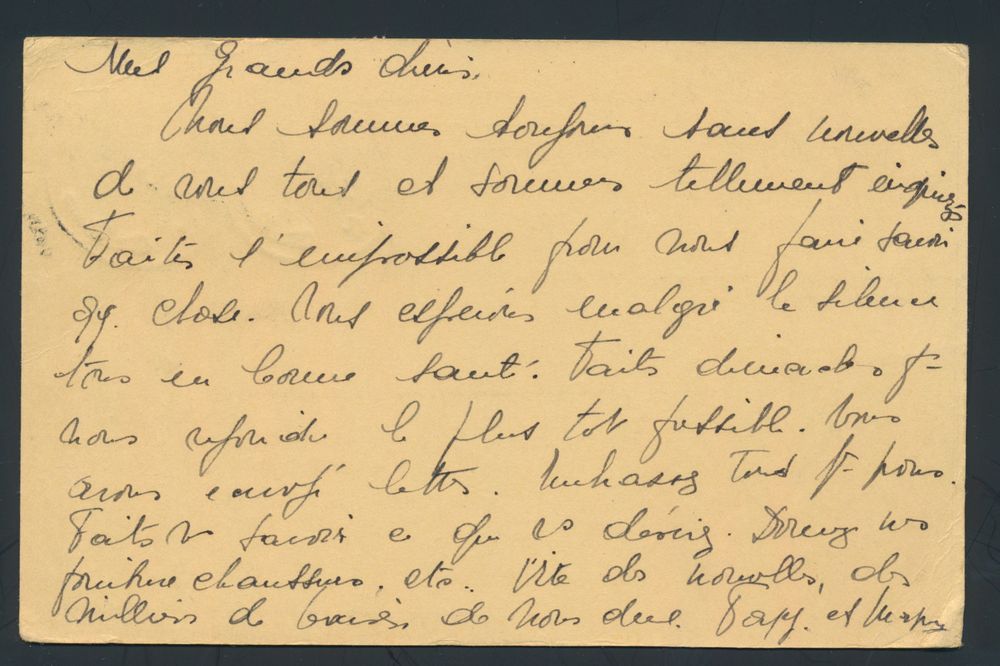 Mes Grands chéris.
Nous sommes toujours sans nouvelles
de vous tous et sommes tellement inquiets
Faites l'impossible pour nous faire savoir
qq. chose. Nous espérons malgré le silence
tous en bonne santé. Faites démarches pr
nous répondre le plus tôt possible. Vous
avons envoyé lettres. Embrassez tous pr nous.
Faites ns savoir ce que vs désirez. Donnez ns
pointure chaussures. etc.. Vite des nouvelles, des
milliers de baisers de nous deux. Papy. et Mamy